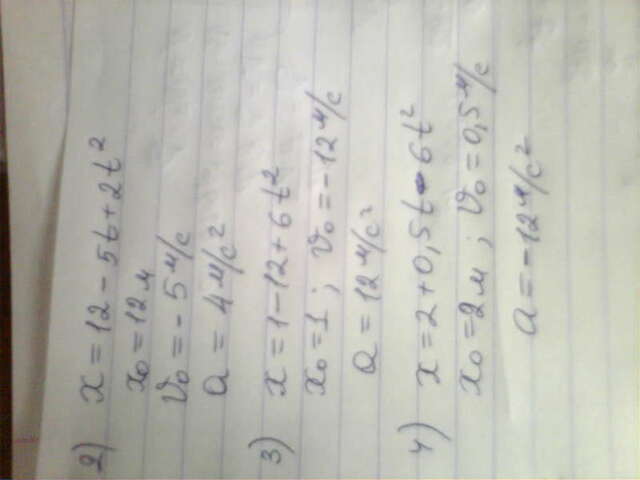 2) x = 12 - 5t + 2t²
x₀ = 12 м
V₀ = - 5 м/с
a = 4 м/с²
3) x = 1 - 12 + 6t²
x₀ = 1 ; V₀ = - 12 м/с
a = 12 м/с²
4) x = 2 + 0,5t - 6t²
x₀ = 2 м ; V₀ = 0,5 м/с
a = - 12 м/с²